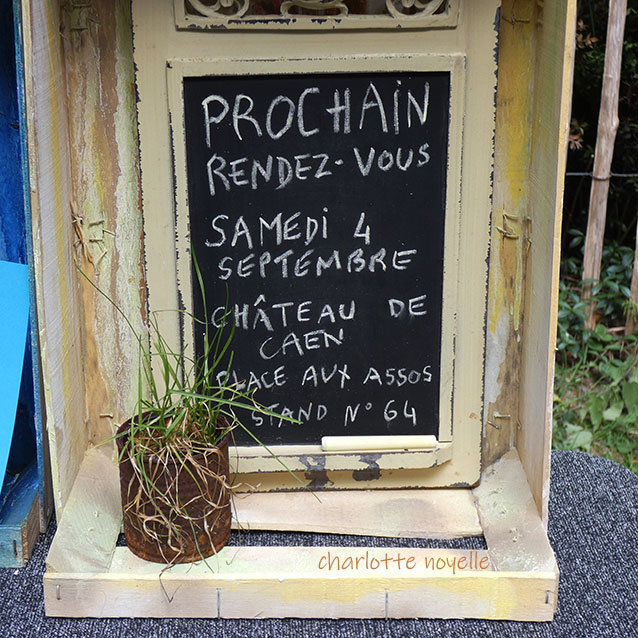 PROCHAIN
RENDEZ-VOUS
SAMEDI 4
SEPTEMBRE
CHÂTEAU DE
CAEN
PLACE AUX ASSOS
STAND N° 64
charlotte noyelle